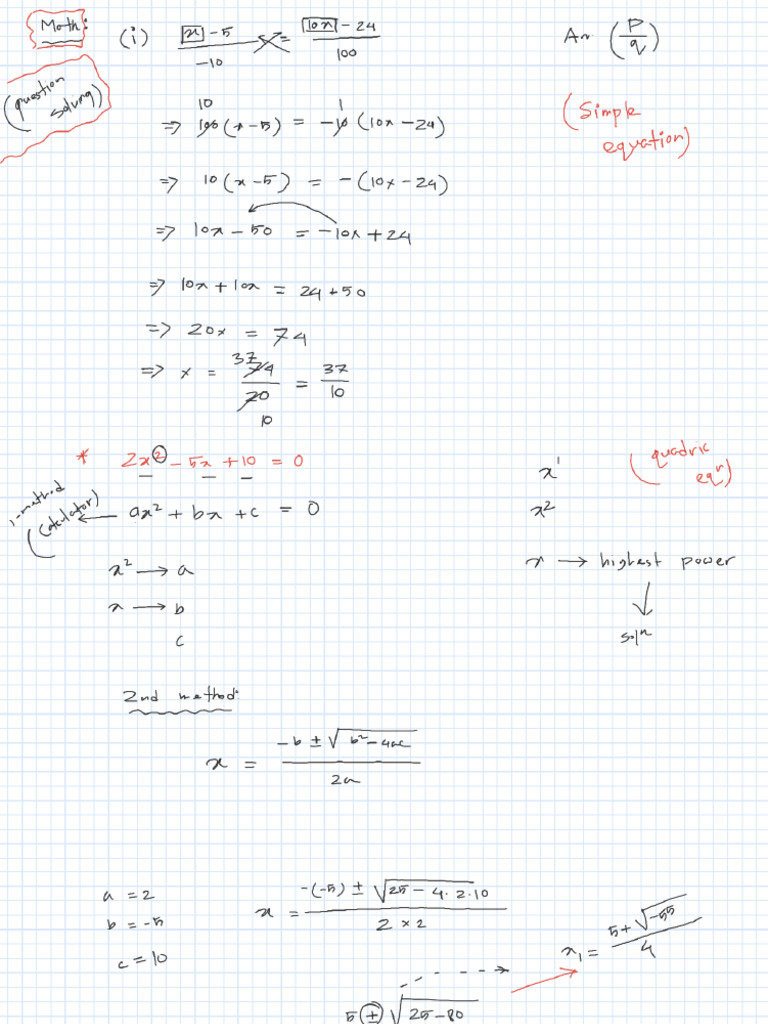 Math:
(question solving)
(i) x - 5 / -10 = 10x - 24 / 100
An (P/q)
10 1
=> 100(x-5) = -10(10x-24)
(Simple equation)
=> 10(x-5) = -(10x-24)
=> 10x - 50 = -10x + 24
=> 10x + 10x = 24 + 50
=> 20x = 74
=> x = 74/20 = 37/10
37
10
* 2x² - 5x + 10 = 0
x¹
(quadric eqⁿ)
1-method (Calculator) ← ax² + bx + c = 0
x²
x² → a
x → highest power
x → b
↓
c
solⁿ
2nd method:
x = -b ± √b²-4ac / 2a
a = 2
b = -5
c = 10
x = -(-5) ± √25 - 4.2.10 / 2 × 2
x₁ = 5 + √-55 / 4
5 ± √25-80